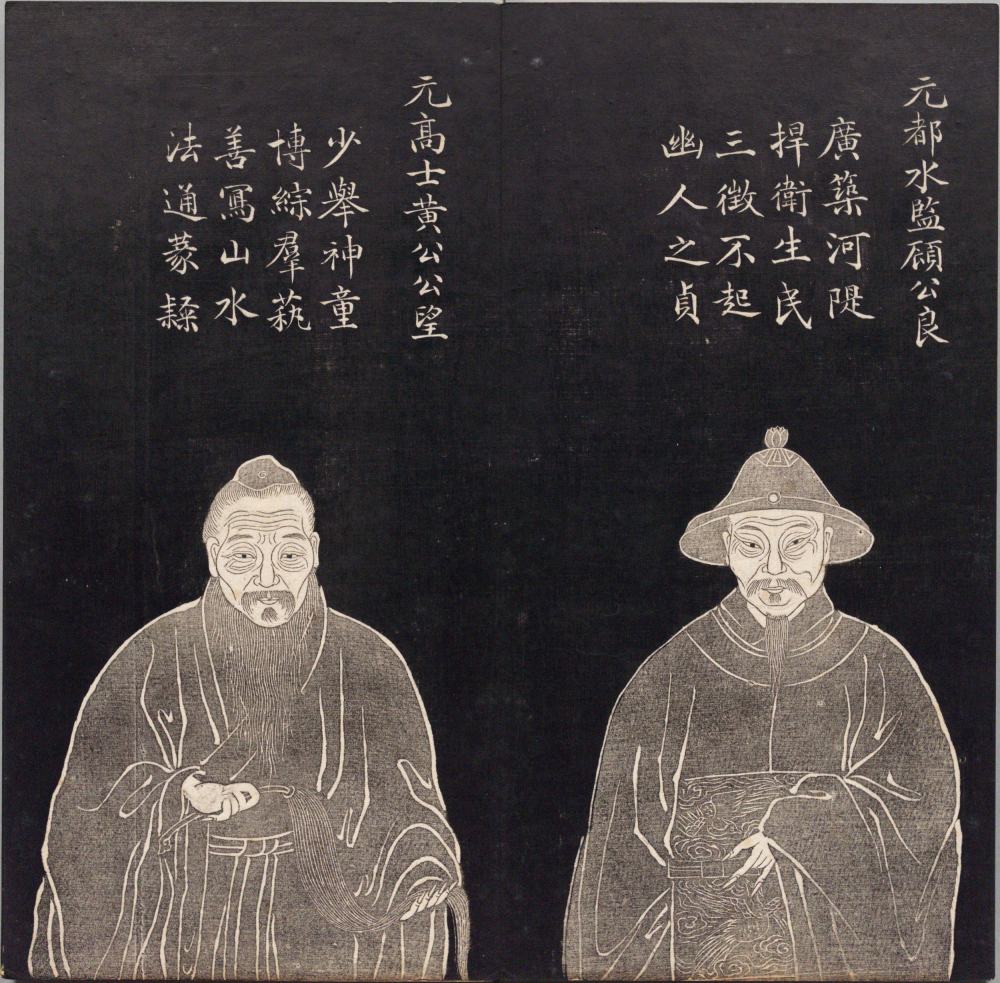 元都水監顧公良
廣築河隄
捍衛生民
三徵不起
幽人之貞
元高士黃公公望
少舉神童
博綜羣蓺
善寫山水
法通篆隸